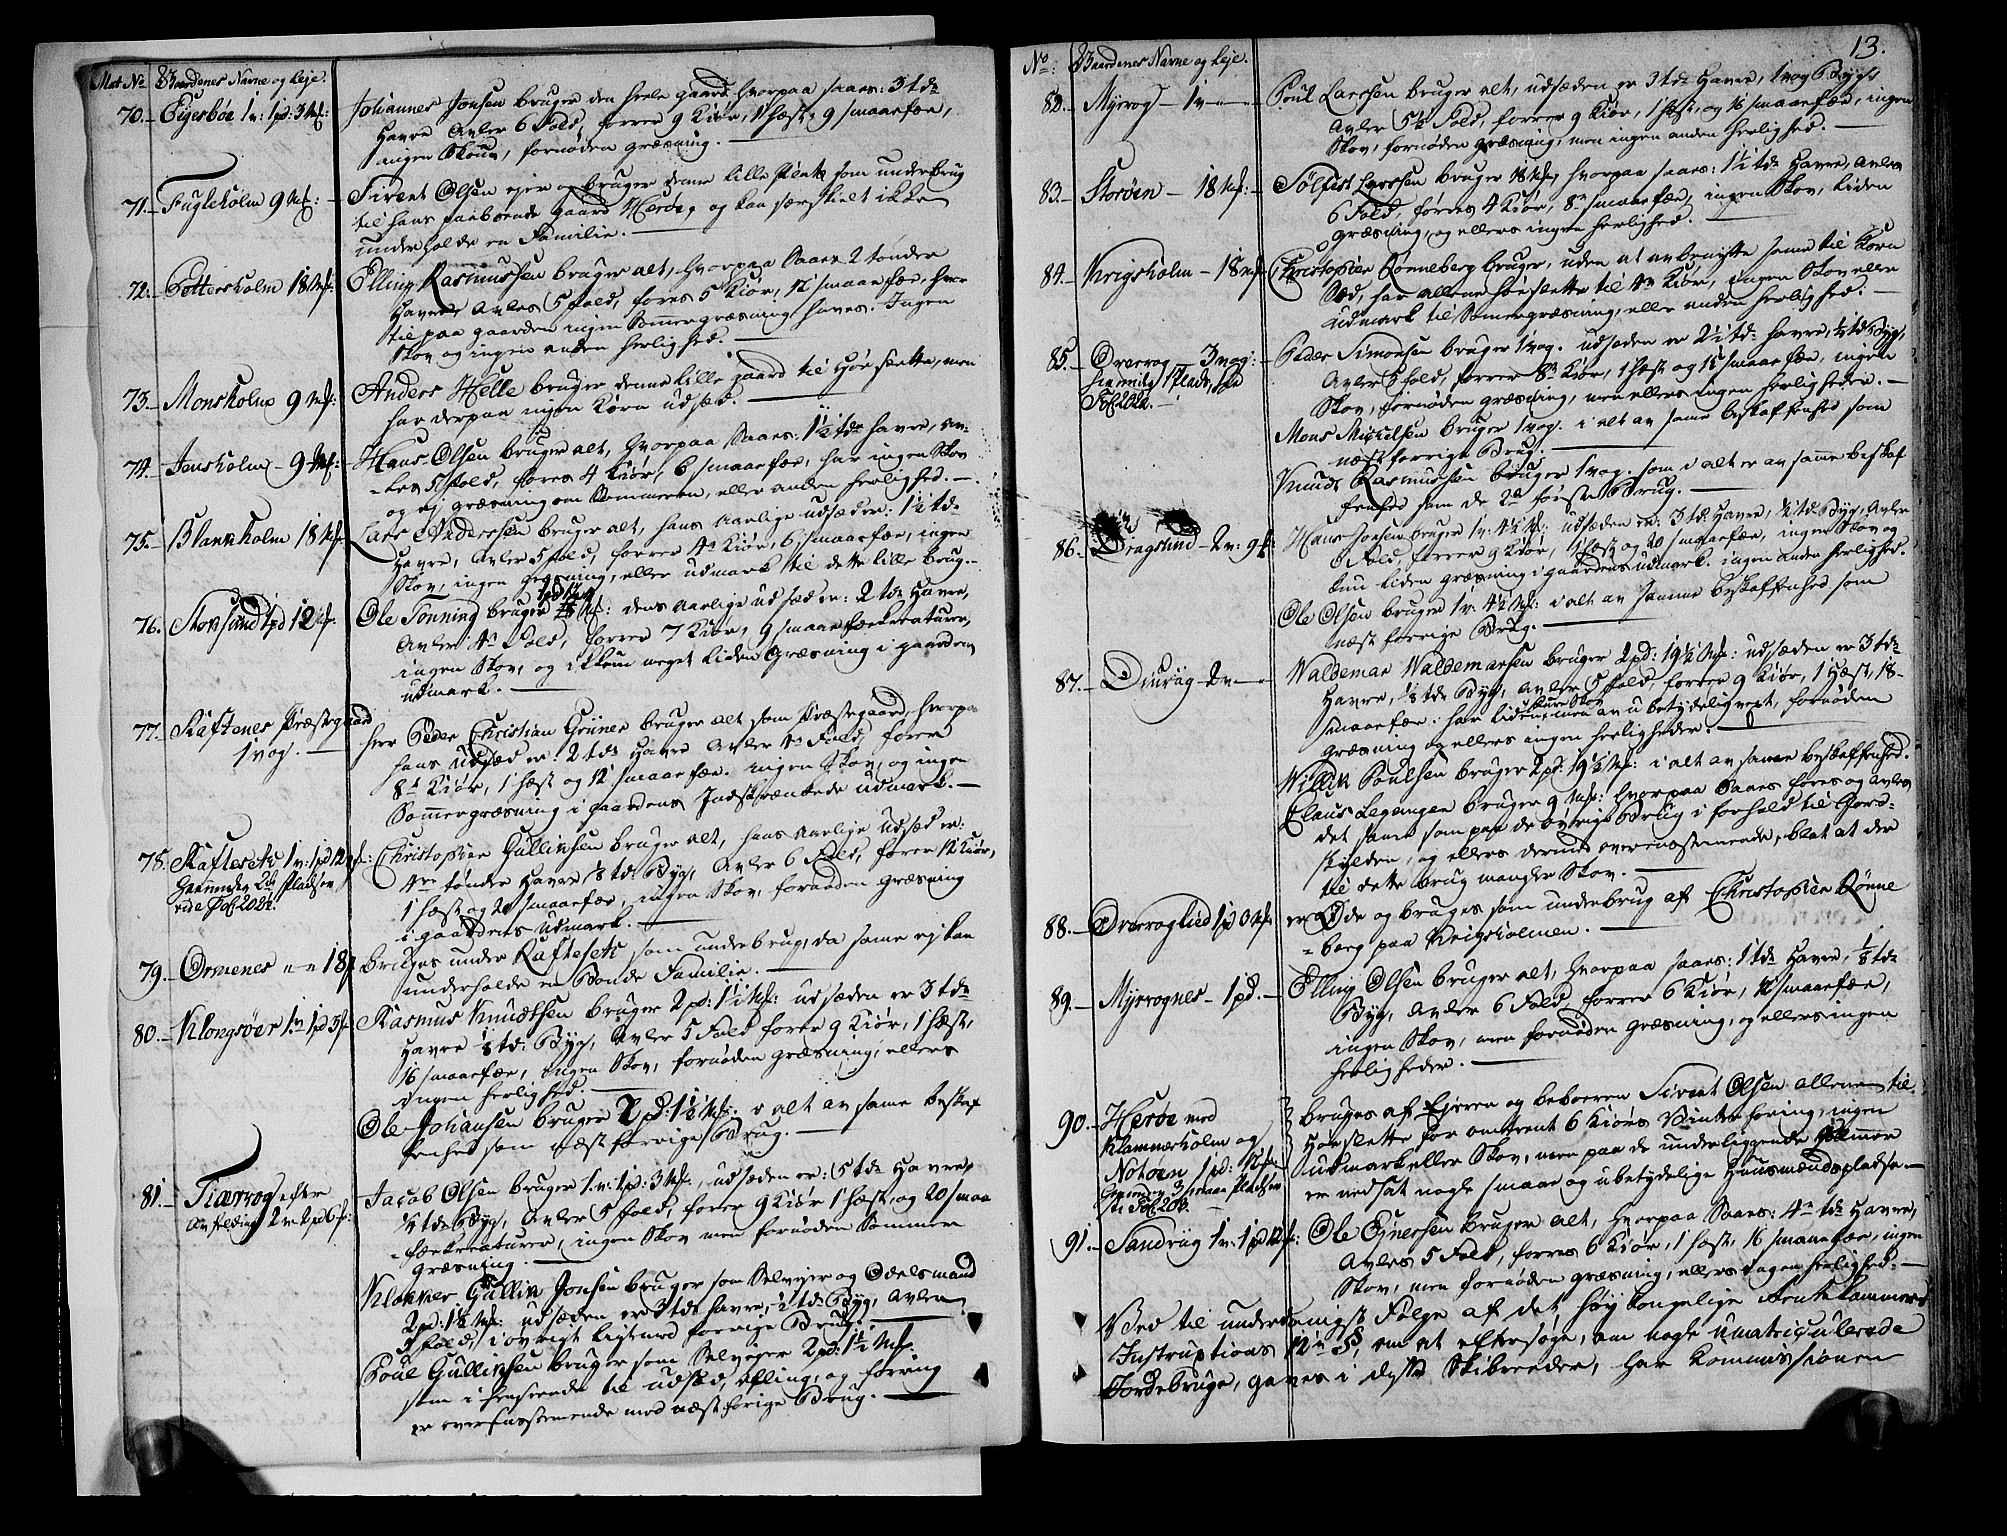 Mat No Gaardenes Navne og Leje.
70. Eigerbøe 1 v: 1 pd: 3 Mk: Johannes Jonsen bruger den heele gaard, hvorpaa saaes: 3 tdr
Havre Avler 6 Fold, forer 9 Kiør, 1 hæst, 9 smaarfæe,
ingen Skouv, fornøden græsning.
71. Fugleholm 9 Mk: Sivert Olsen ejer og bruger denne lille Plads som underbrug
til hans paaboende gaard Herøe, og kan særskielt ikke
underholde en Familie.
72. Pottersholm 18 Mk: Elling Rasmussen bruger alt, hvorpaa Saaes 2 tønder
Havre Avles 5 fold, fores 5 Kiør, 12 smaarfæe, hvor
til paa gaarden ingen Sommergræsning haves. Ingen
Skov og ingen anden herlighed.
73. Monsholm 9 Mk: Anders Helle bruger denne lille gaard til Høeslætte, men
har derpaa ingen Korn udsæd.
74. Jensholm 9 Mk: Hans Olsen bruger alt, hvorpaa Saaes: 1½ tdr havre, av-
les 5 fold, fores 4 Kiør, 6 smaarfæe, har ingen Skov
og ej græsning om Sommeren, eller anden herlighed.
75. Blankholm 18 Mk: Lars Anderssen bruger alt, hans Aarlige udsæd er: 1½ tdr
Havre, Avler 5 fold, forer 4 Kiør, 6 smaarfæe, ingen
Skov, ingen græsning, eller udmark til dette lille brug.
76. Storsund 1 pd 12 Mk: Ole Tonning bruger 1 pd 12 Mk: dens Aarlige udsæd er: 2 tdr Havre,
Avler 4 Fold, forer 7 Kiør, 9 smaarfæekreaturer,
ingen Skov, og ikkun meget liden Græsning i gaardens
udmark.
77. Raftenes Præstegaard Herr Peder Christian Grüner bruger alt som Præstegaard, hvorpaa
1 vog. hans udsæd er: 2 tdr Havre Avler 4 Fold forer
8 Kiør, 1 hæst og 12 smaarfæe. ingen Skov, og ingen
Sommergræsning i gaardens Indskrænkede udmark.
78. Raftesæth 1 v: 1 pd 12 Mk: Christopher Gullixsen bruger alt, hans Aarlige udsæd er:
4 tønder Havre ⅛ td: Byg, Avler 6 Fold, forer 12 Kiør,
1 hæst og 20 smaarfæe, ingen Skov, fornøden græsning
i gaardens udmark.
79. Ormenes 18 bruges under Raftesæth som underbrug, da samme ej kan
underholde en Bonde Familie.
80. Klongsøer 1 v 1 pd 3 Rasmus Knudtsen bruger 2 pd: 1½ Mk: udsæden er 3 tdr
Havre ⅛ td: Byg, Avler 5 Fold forer 9 Kiør, 1 hæst,
16 smaarfæe, ingen Skov, fornøden græsning, ellers
ingen herlighed.
Ole Johansen bruger 2 pd: 1½ Mk: i alt av samme beskaf
fenhed som næst forrige Brug.
81. Tiærvog efter Jacob Olsen bruger 1 v: 1 pd: 3 Mk:, udsæden er: 5 tdr Havre,
Avfelding 2 v 2 pd 6 Mk: ¼ tdr Byg, Avler 5 fold, forer 9 Kiør 1 hæst, og 20 smaa
fæekreaturer, ingen Skov men fornøden Sommer
græsning.
Klokker Gullik Jonsen bruger som Selvejer og Odelsmand
2 pd: 1½ Mk: udsæden er 3 tdr havre, ½ tdr Byg, Avler
5 fold, i øvrigt ligesom forrige Brug.
Poul Gullixsen bruger som Selvejer 2 pd: 1½ Mk:
som i henseende til udsæd, Afling, og foring
er overensstemmende med næst forige Brug.
13.
No: Gaardenes Navne og Leje.
82. Myrvog 1 v Poul Larssen bruger alt, udsæden er 3 tdr Havre, Byg,
Avler 5½ Fold, forer 9 Kiør, 1 hæst, og 16 smaarfæe, ingen
Skov, fornøden græsning, men ingen anden herlighed.
83. Storøen 18 Mk: Sølfest Larssen bruger 18 Mk, hvorpaa saaes: 1½ tdr Havre, Avles
6 Fold, fores 4 Kiør, 8 smaarfæe, ingen Skov, liden
græsning, og ellers ingen herlighed.
84. Krigsholm 18 Mk Christopher Rønneberg bruger, uden at avbenytte samme til Korn
Sæd, har allene høeslætte til 4 Kiør, ingen Skov eller
udmark til Sommergræsning, eller anden herlighed.
85. Overvog 3 vog: Peder Simonsen bruger 1 vog. udsæden er 2½ td: havre, ¼ td Byg,
hermed 1 Plads, Avler 5 Fold, forer 8 Kiør, 1 hæst og 15 smaarfæe, ingen
Skov, fornøden græsning, men ellers ingen herligheder.
Mons Mickelsen bruger 1 vog. i alt av samme beskaffenhed som
næst forrige Brug.
Knudt Rasmussen bruger 1 vog. som i alt er av samme beskaf
fenhed som de 2de første Brug.
86. Dragsund 2 v: 9 Hans Joesen bruger 1 v: 4½ Mk: udsæden er: 3 td: Havre, ½ td: Byg, Avler
5 Fold, forer 9 Kiør, 1 hæst og 20 smaarfæe, ingen Skov og
kun liden græsning i gaardens udmark. ingen anden herlighed.
Ole Olsen bruger 1 v: 4½ Mk: i alt av samme beskaffenhed som
næst forrige Brug.
87. Djuvig 2 v Waldemar Waldemarsen bruger 2 pd: 19½ Mk: udsæden er 3 tdr
Havre, ⅛ tdr Byg, Avler 5 fold, forer 9 Kiør, 1 Hæst, 18
smaarfæe. har liden Furre Skov men av ubetydelig vext, fornøden
græsning og ellers ingen herligheder.
Willik Poulsen bruger 2 pd: 19½ Mk: i alt av samme beskaffenhed.
Claus Legangen bruger 9 Mk: hvorpaa Saaes fores og avles
det samme som paa de øvrige Brug i forhold til Jord-
skylden, og ellers dermed overensstemmende, blot at der
til dette brug mangler Skov.
88. Overvoglied 1 pd Mk er Øde og bruges som underbrug af Christopher Rønne
berg paa Krigsholmen.
89. Myrvognes 1 pd. Elling Olsen bruger alt, hvorpaa saaes: 1 tdr Havre, ⅛ tdr
Byg, Avler 6 Fold, forer 6 Kiør, 12 smaarfæe,
ingen Skov, men fornøden græsning, og ellers ingen
herligheder.
90. Herøe med bruges af Ejeren og beboeren Sivert Olsen allene til
Klammerholm og Høeslette for omtrent 6 Kiørs Vinterforing, ingen
Notøen 1 pd: 12 Mk: udmark eller Skov, men paa de underliggende Holmer
herunder 3 smaae Pladser er nedsat nogle smaae og ubetydelige Huusmændspladse.
91. Sandvig 1 v: 1 pd 12 Mk: Ole Ejnersen bruger alt, hvorpaa Saaes: 4 tdr Havre,
Avles 5 Fold, fores 6 Kiør, 1 hæst, 16 smaarfæe, ingen
Skov, men fornøden græsning, ellers ingen herlighed.
Ved til underdanigst Følge af det høy kongelige Rentekammers
Instructions 12te §, om at eftersøge, om nogle umatriculerede
Jordebruge, haves i dette Skibreede, har Kommissionen